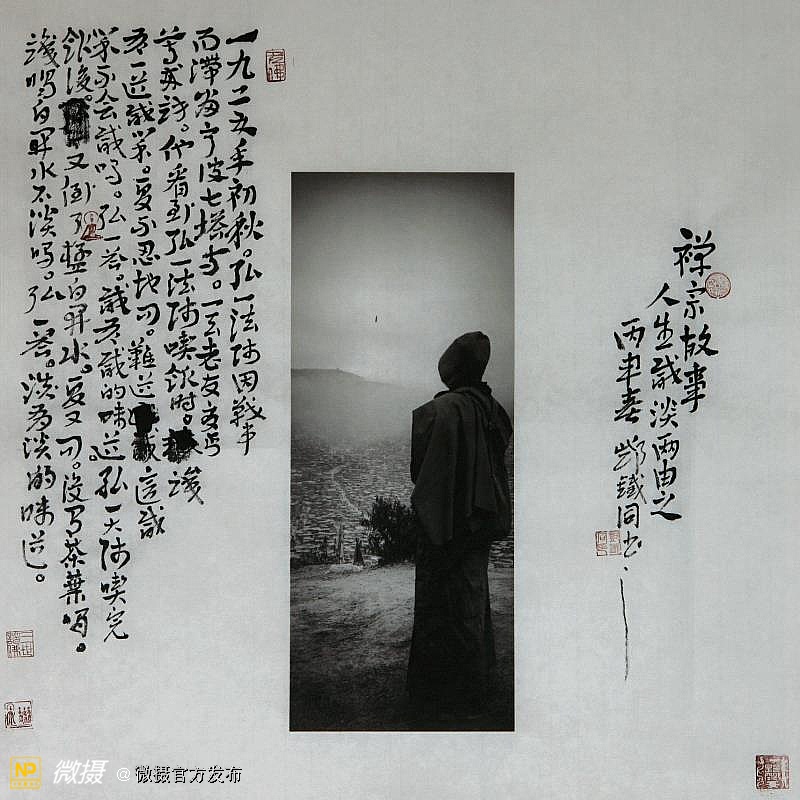 禅宗故事
人生咸淡两由之
丙申春 鐵同书
一九二五年初秋。弘一法师因戰事
而滞留宁波七塔寺。一天老友夏丏
尊來訪。他看到弘一法师喫飯时。
有一道咸菜。夏不忍地问。難道這咸
菜不会咸吗。弘一答。咸有咸的味道。弘一大师喫完
飯後。又倒了一杯白开水。夏又问。沒有茶葉吗。
喝白开水不淡吗。弘一答。淡有淡的味道。
NP 微摄 @微摄官方发布